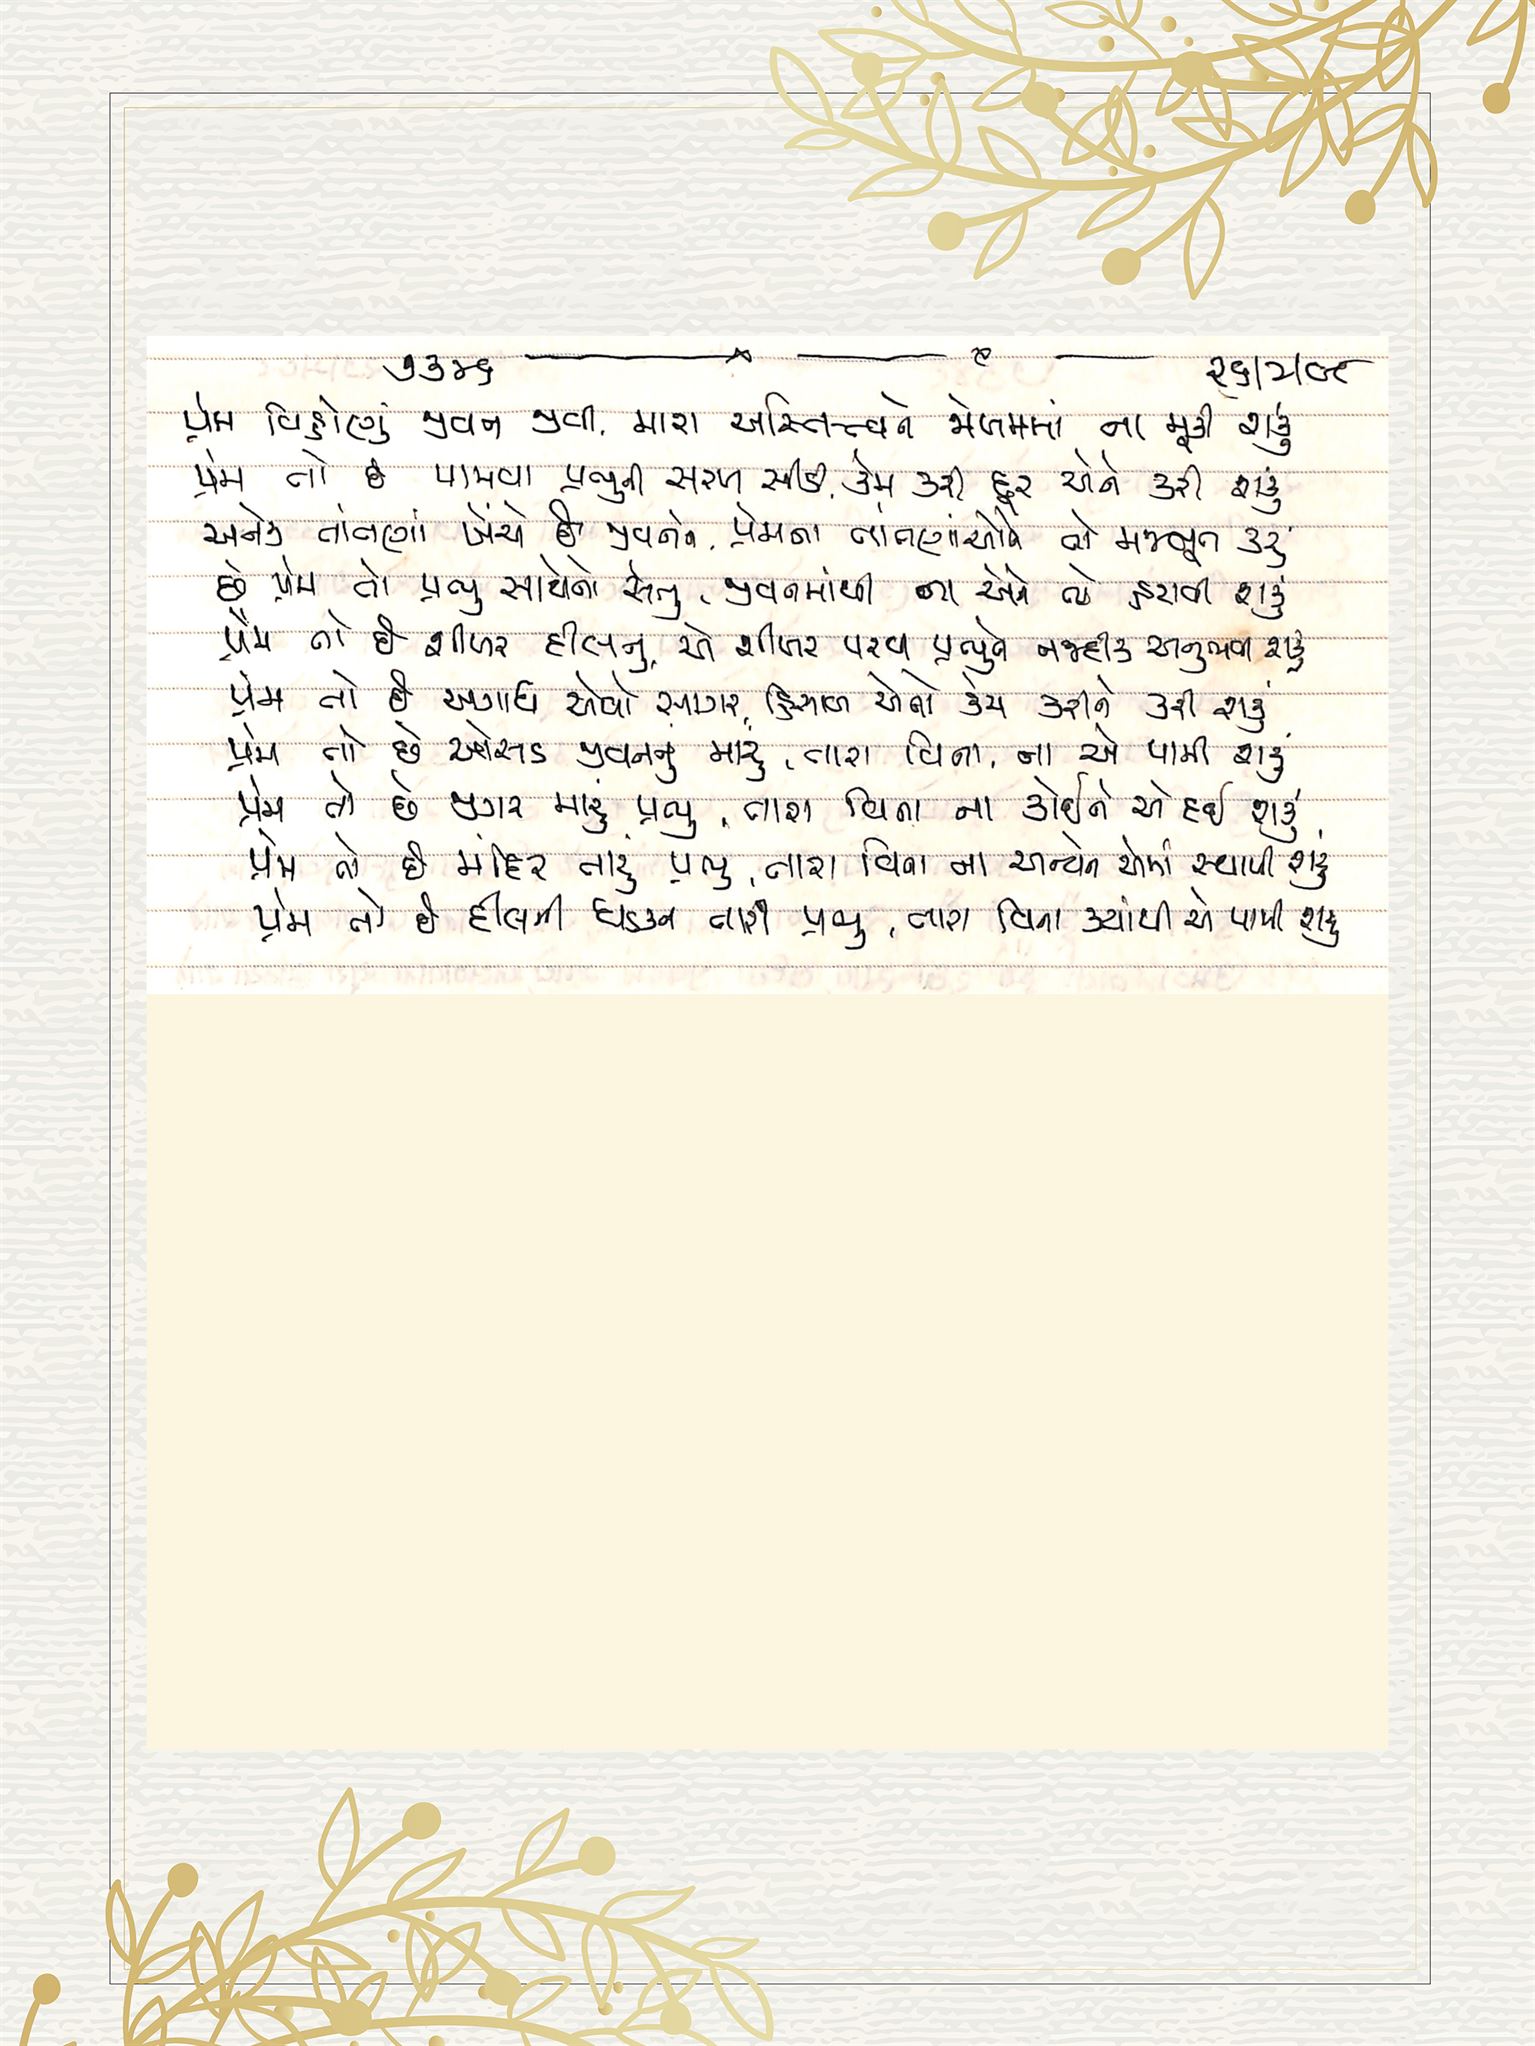 ૭૩૪૬ ૨૬/૨/૯૮
પ્રેમ વિહોણું જીવન જીવી, મારા અસ્તિત્ત્વને ના મૂકી શકું
પ્રેમ તો છે પામવા પ્રભુની સરળ સીડી, કેમ કરી દૂર એને કરી શકું
અનેક તાંતણાં ખેંચે છે જીવનને, પ્રેમના તાંતણાંઓને તો મજબૂત કરું
છે પ્રેમ તો પ્રભુ સાથેનો સેતુ, જીવનમાંથી ના એને તો હટાવી શકું
પ્રેમ તો છે શીખર દીલનું, એ શીખર પરથી પ્રભુને નજદીક અનુભવી શકું
પ્રેમ તો છે અગાધ એવો સાગર, એનો કેમ કરીને કરી શકું
પ્રેમ તો છે ઓસડ જીવનનું મારું, તારા વિના, ના એ પામી શકું
પ્રેમ તો છે જીગર મારું પ્રભુ, તારા વિના ના કોઈને એ દઈ શકું
પ્રેમ તો છે મંદિર તારું પ્રભુ, તારા વિના ના અન્યને એમાં સ્થાપી શકું
પ્રેમ તો છે દીલની ધડકન તારી પ્રભુ, તારા વિના ક્યાંથી એ પામી શકું